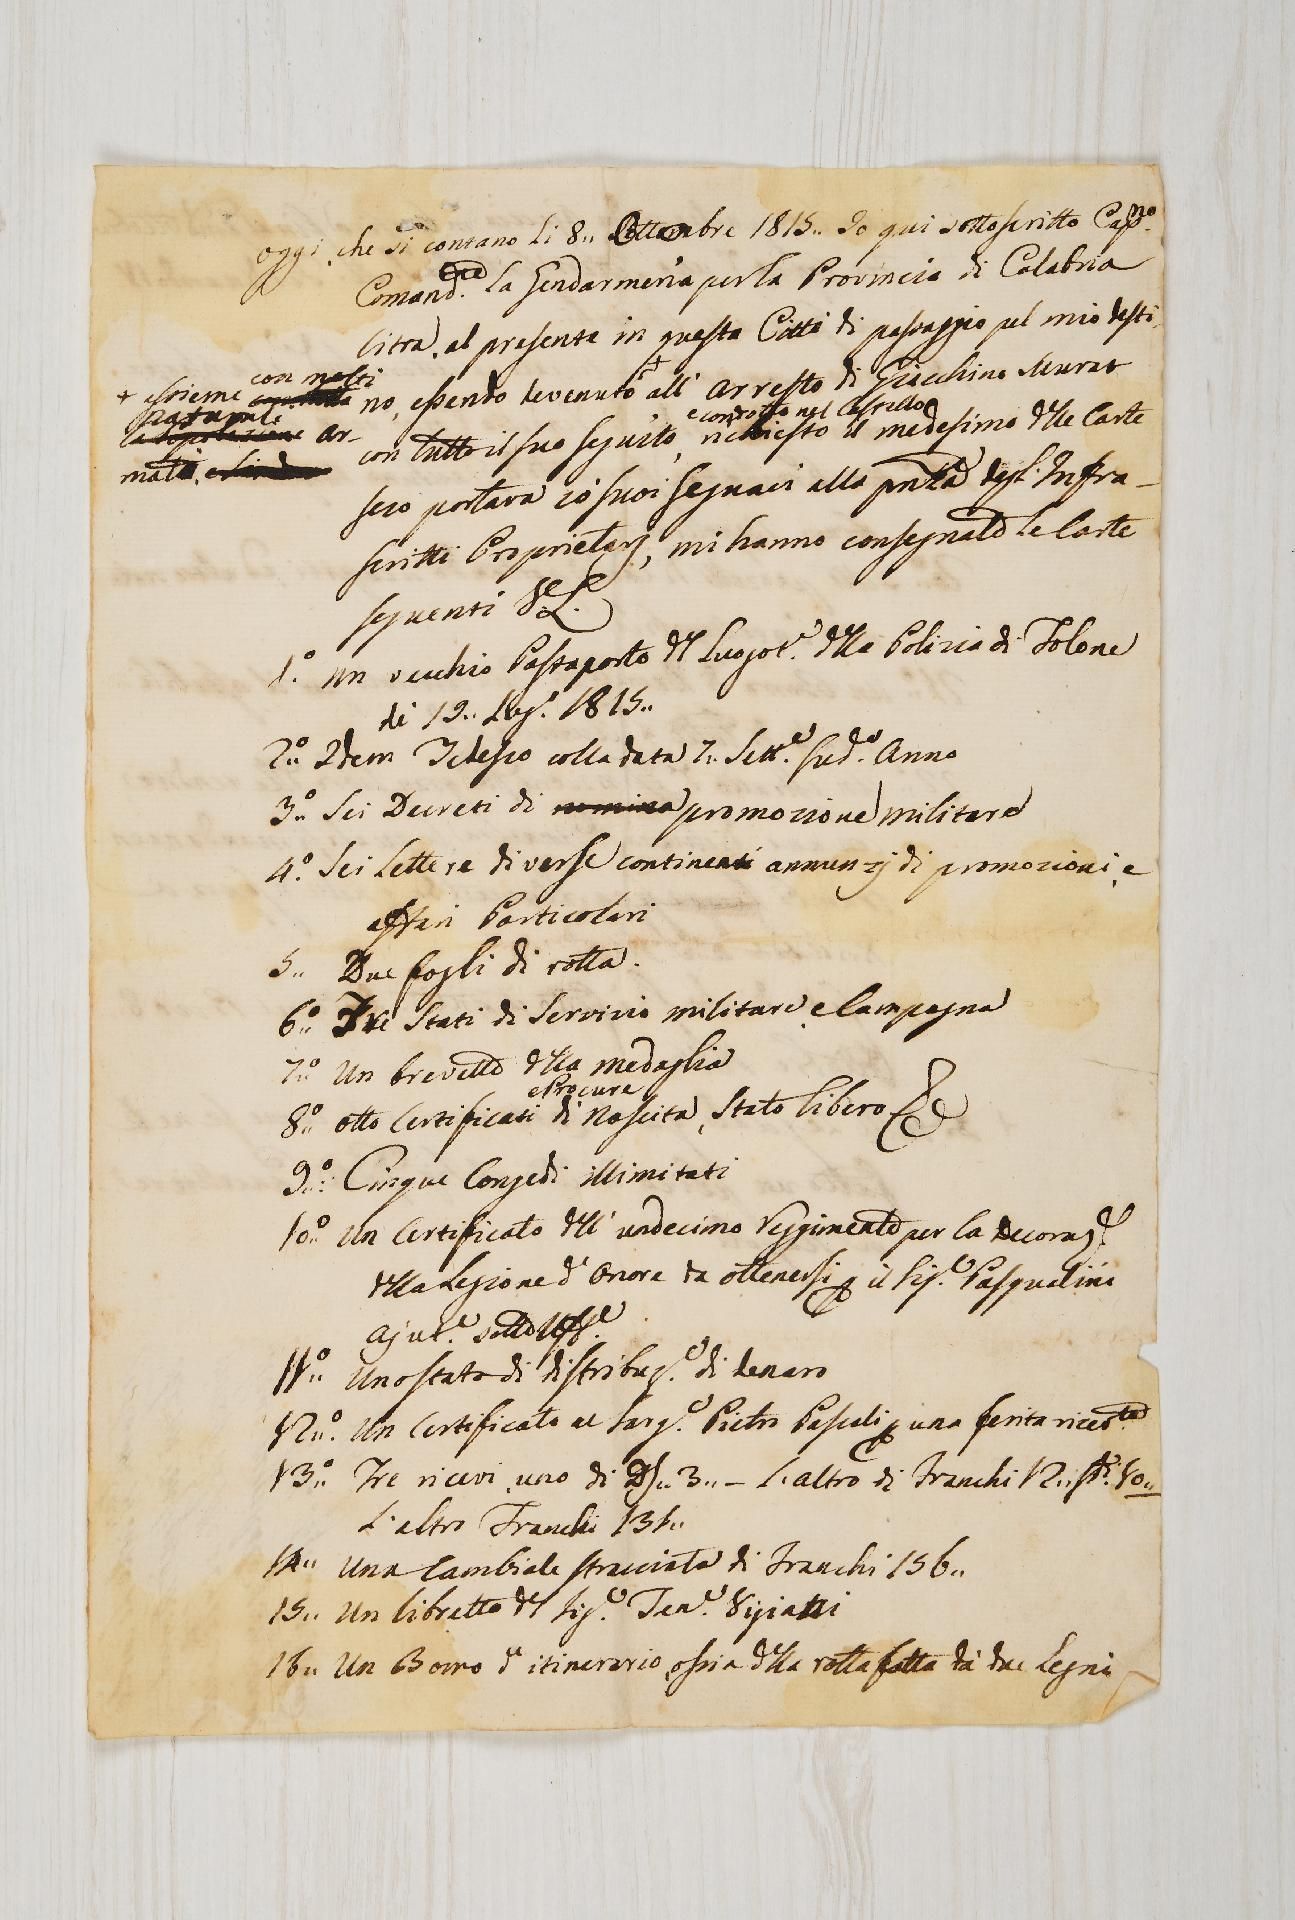 oggi che si contano li 8.. Ottombre 1815.. Io qui sottoscritto Cap.no
Comand.te la Gendarmeria per la Provincia di Calabria
Citra, al presente in questa Città di passaggio pel mio desti-
+ assieme con molti
paesani ar-
mati,
no, essendo devenuto + all' arresto di Giacchino Murat
e condotto nel Castello
con tutto il suo seguito, richiesto il medesimo d'lle Carte
seco portava co' suoi seguaci alla pnza degl' Infra-
scritti Proprietarj, mi hanno consegnato le Carte
seguenti
1.° un vecchio Passaporto d'l Luogot.e d'lla Polizia di Tolone
de' 19.. Lug.o 1815..
2.° Idem Tedesco colla data 7.. Sett.e sud.o Anno
3.° Sei Decreti di nomina promozione militare
4.° Sei lettere diverse continenti annunzj di promozioni, e
affari Particolari
5.. Due fogli di rotta.
6.° Tre Stati di Servizio militare, e Campagna
7.° Un brevetto d'lla medaglia
e Procure
8.° otto Certificati di Nascita, Stato libero &c
9.° Cinque Congedi illimitati
10.° Un Certificato d'll' undecimo Reggimento per la Decoraz.e
d'lla Legione d' Onore da ottenersi p il Sig.e Pasqualini
Ajut.e sotto Uff.e
11.° Uno stato di distribuz.e di denaro
12.° Un Certificato al Sarg.e Pietro Pascali p una ferita ricevta
13.° Tre ricevi, uno di D.. 3.. – L'altro di Franchi 12.. 50..
L'altro Franchi 131..
14.. Una Cambiale stracciata di Franchi 156..
15.. Un libretto d'l Sig.e Ten.e
16.. Un d' itinerario, ossia d'lla rotta fatta da due Legni